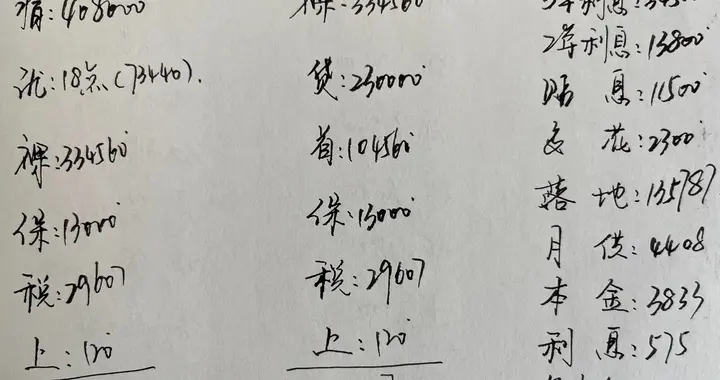 指:408000
优:18点(73440).
裸:334560
保:13000
税:29607
上:120
裸:334560
贷:230000
首:104560
保:13000
税:29607
上:120
2年利息:13800
贴息:11500
多花:2300
落地:135787
月供:4408
本金:3833
利息:575